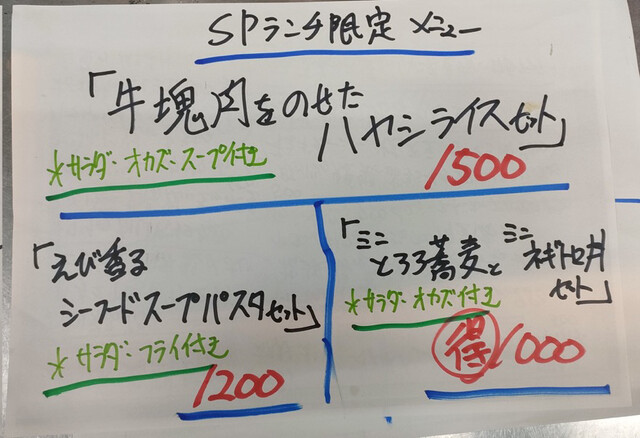 SPランチ限定メニュー
「牛塊肉をのせた
ハヤシライスセット」
*サラダ・オカズ・スープ付き
1500
「えび香る
シーフードスープパスタセット」
*サラダ・フライ付き
1200
「ミニとろろ蕎麦とミニネギトロ丼
セット」
*サラダ・オカズ付き
得 1000